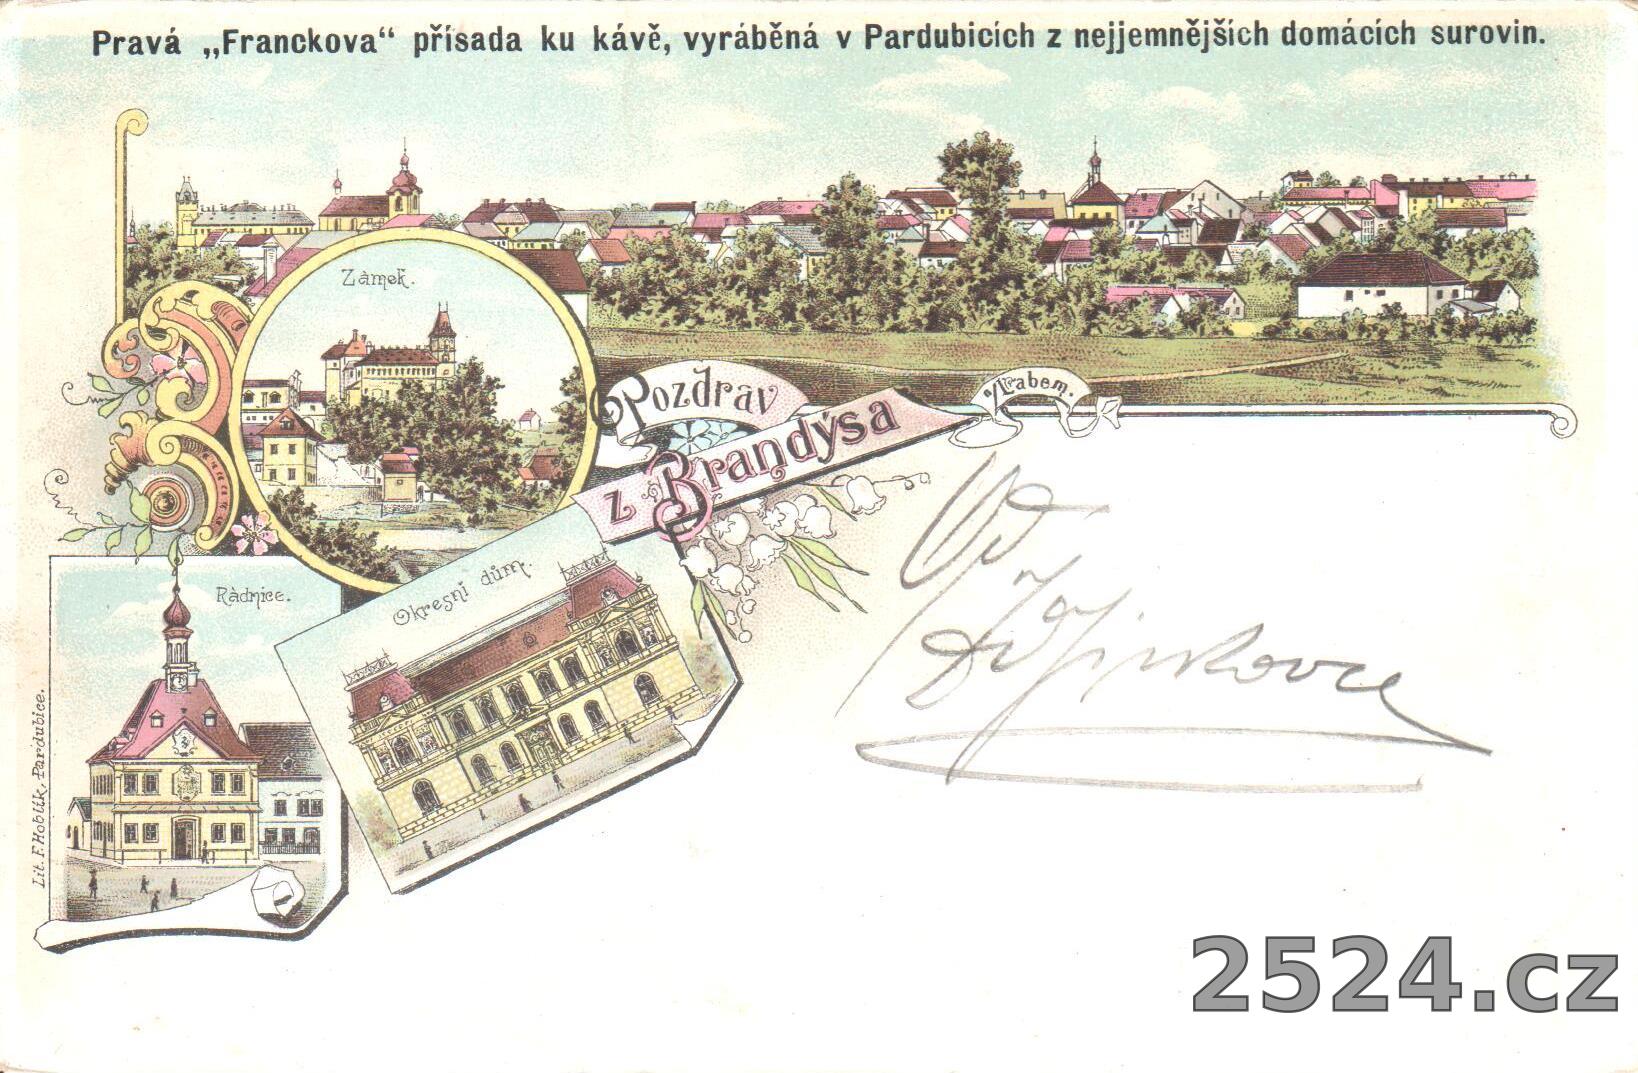 Pravá „Franckova“ přísada ku kávě, vyráběná v Pardubicích z nejjemnějších domácích surovin.
Zámek.
Pozdrav
z Brandýsa
n/Labem.
Rádnice.
Okresní dům.
Lit. F. Hoblík, Pardubice.
2524.cz